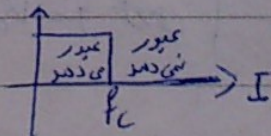 عبور
می‌دهد
عبور
نمی‌دهد
I
fc